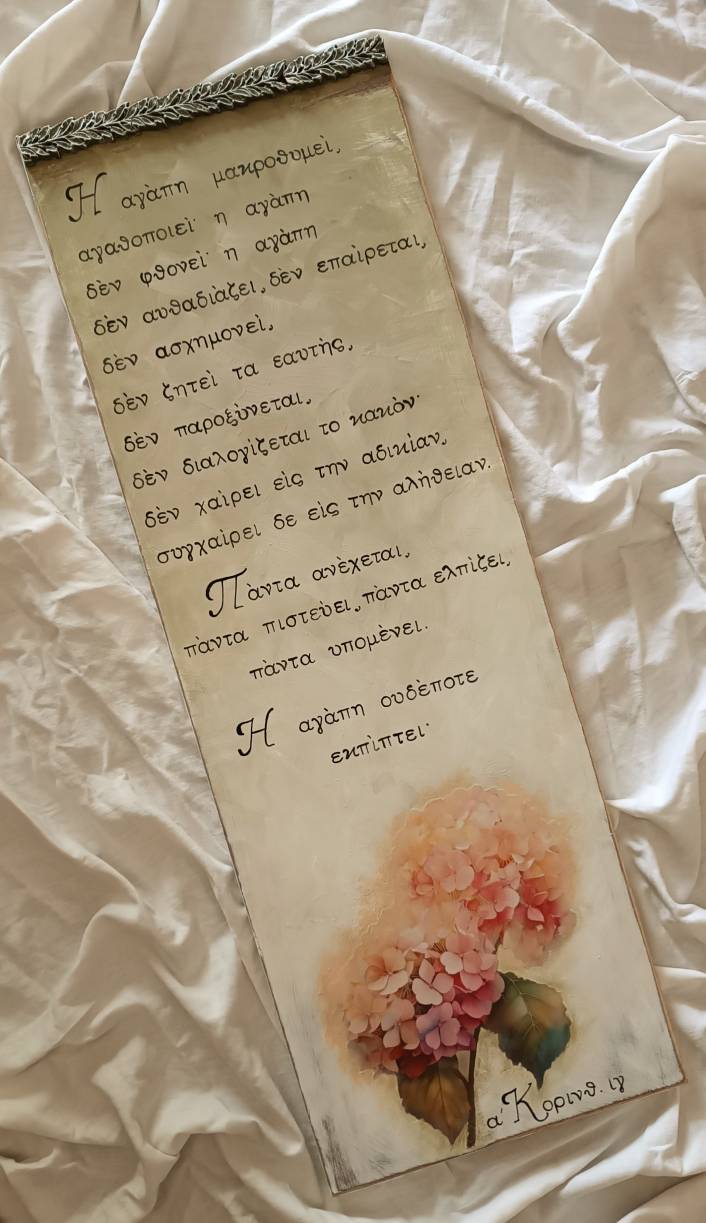 Η αγὰπη μακροθυμεὶ,
αγαθοποιεὶ· η αγὰπη
δὲν φθονεὶ· η αγὰπη
δὲν αυθαδιὰζει, δὲν επαὶρεται,
δὲν ασχημονεὶ,
δὲν ζητεὶ τα εαυτὴς,
δὲν παροξὺνεται,
δὲν διαλογὶζεται το κακὸν·
δὲν χαὶρει εὶς την αδικὶαν,
συγχαὶρει δε εὶς την αλὴθειαν.
Πὰντα ανὲχεται,
πὰντα πιστεὺει, πὰντα ελπὶζει,
πὰντα υπομὲνει.
Η αγὰπη ουδὲποτε
εκπὶπτει·
α' Κορινθ. ιγ